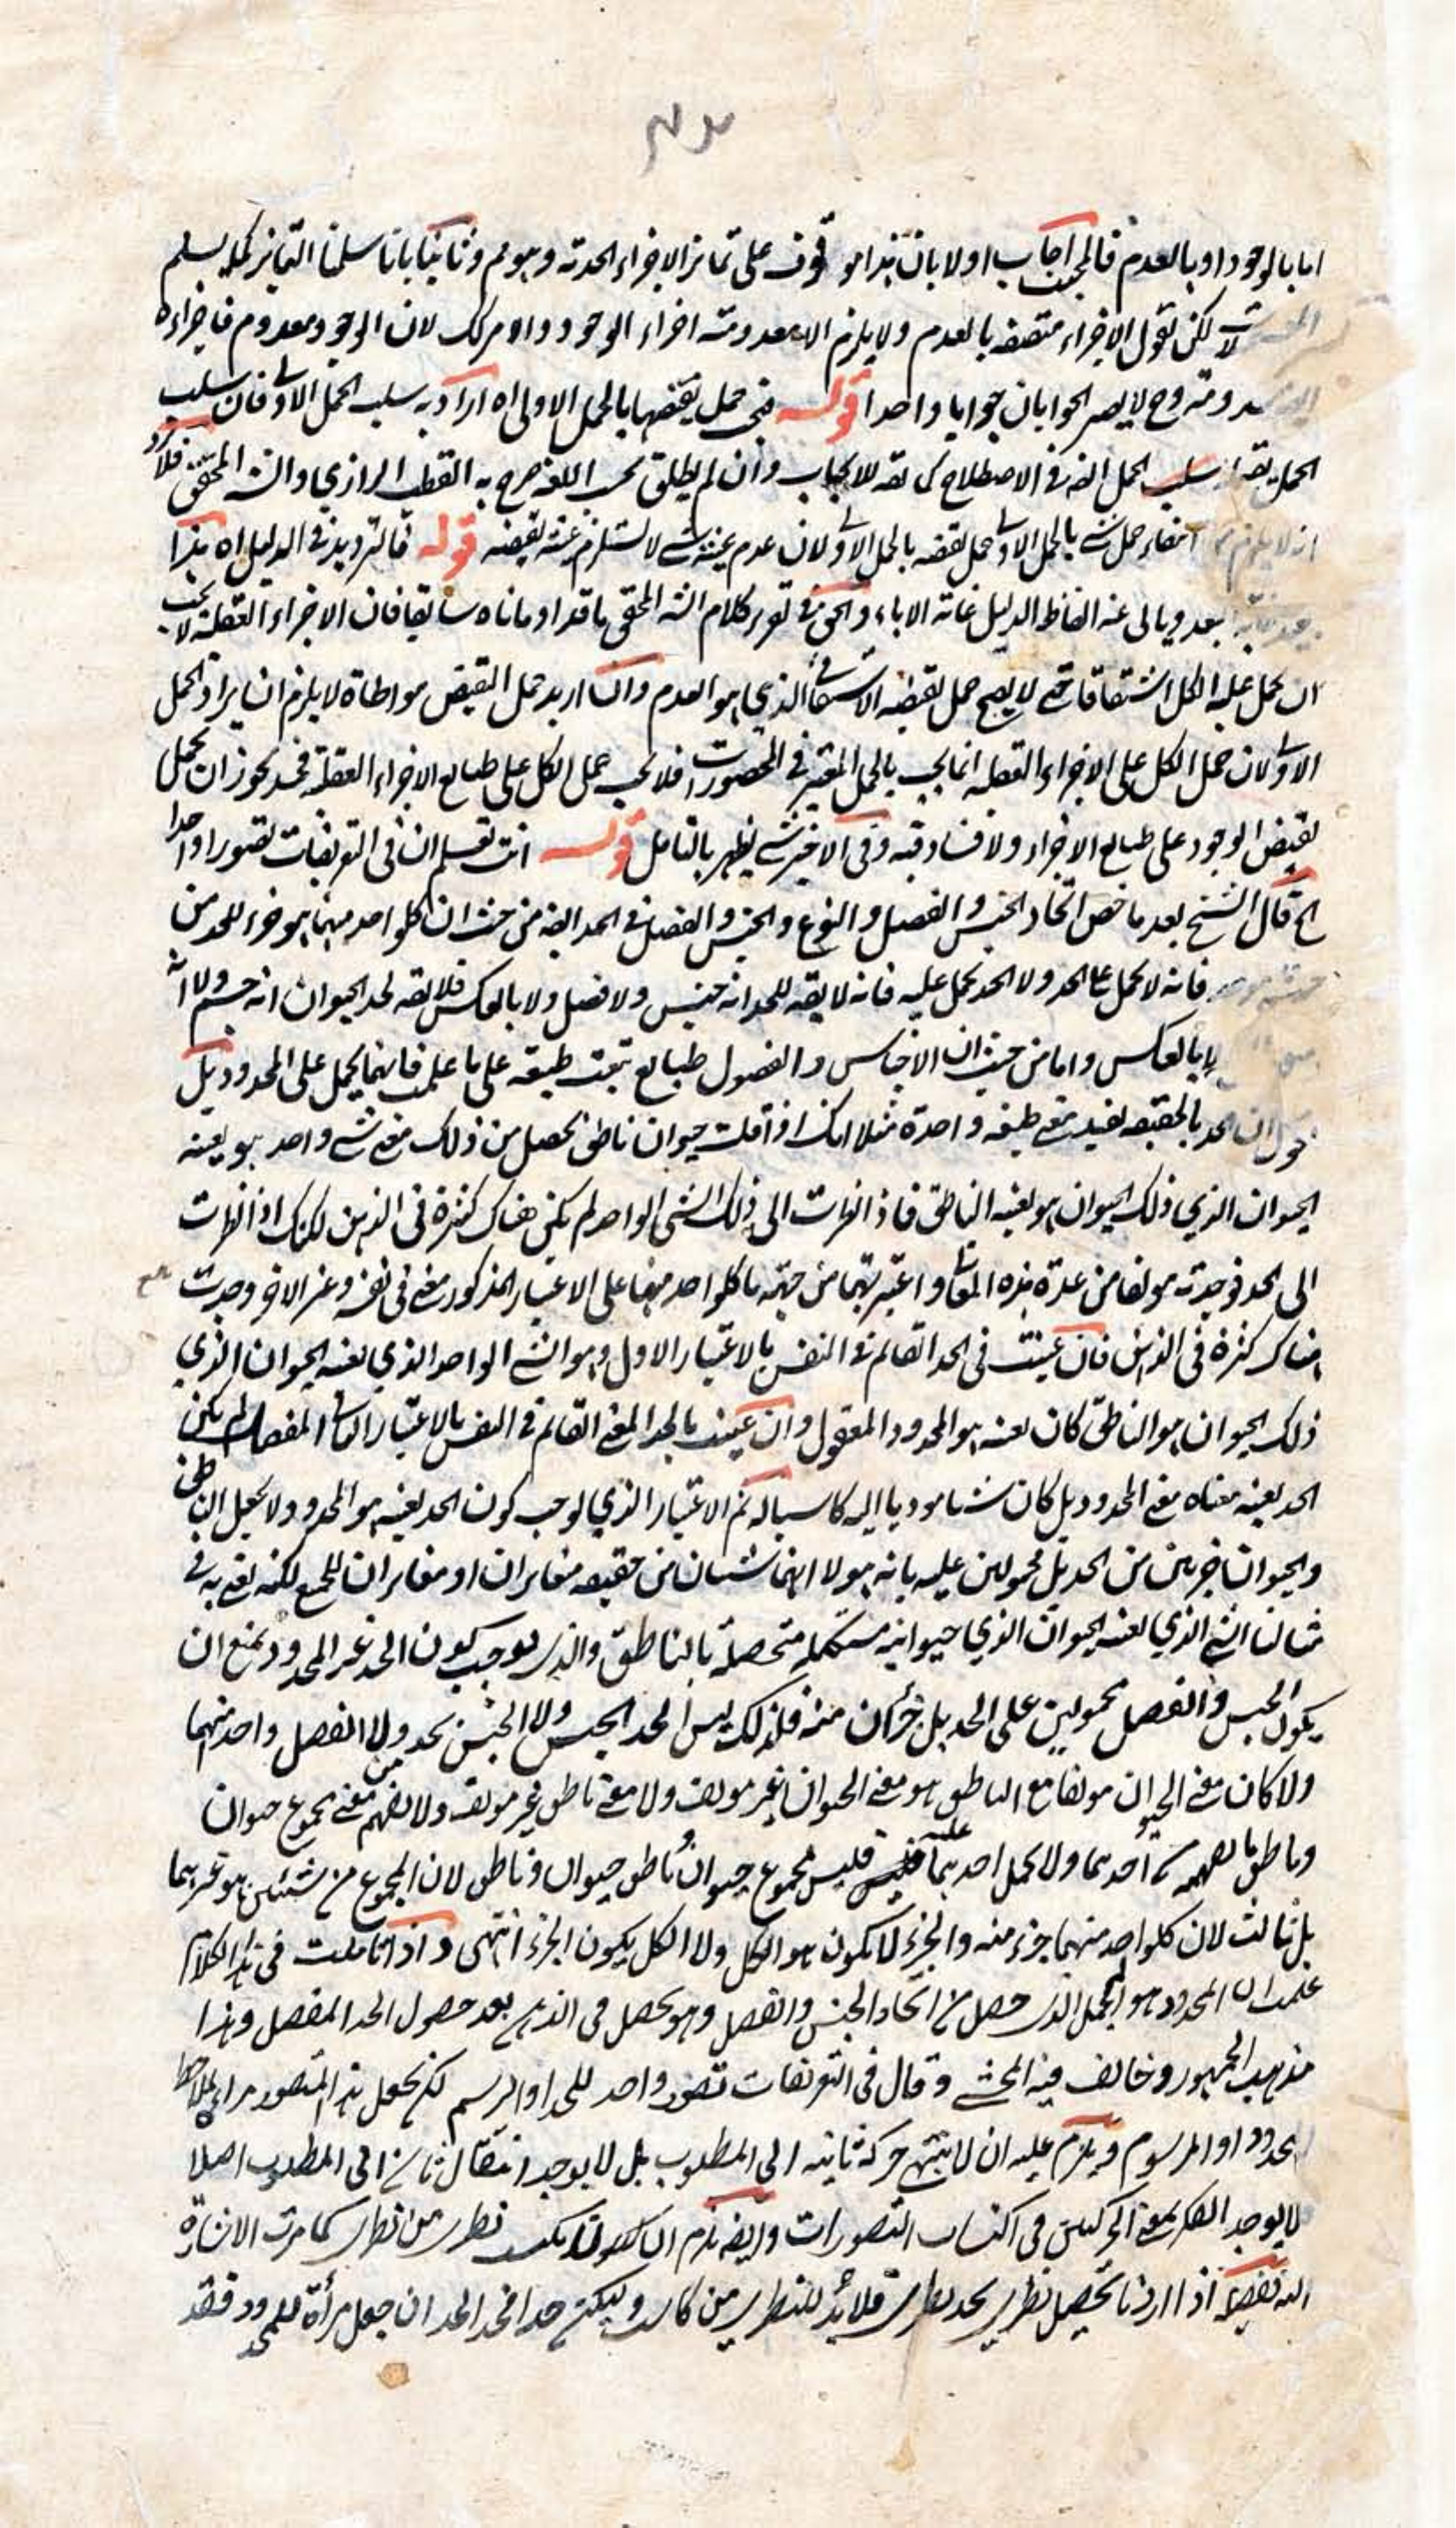 اما بالوجود او بالعدم فالمجيب اجاب اولا بان هذا موقوف على تمايز الاجزاء الحدية وهو مم وثانيا بانا سلمنا التمايز كما يسلم
لكن نقول الاجزاء متصفة بالعدم ولا يلزم الا معدومية اجزاء الوجود لان الوجود معدوم فاجزاءه
وح لا يصير الجوابان جوابا واحدا قوله فى حمل نقيضها بالحمل الاولى اه اراد به سلب الحمل الاولى فان سلب
الحمل يقه سلب الحمل ايضه فى الاصطلاح كما يقه للايجاب وان لم يطلق بحسب اللغة صرح به القطب الرازي والشه المحقق فلا يرد
انه لا يلزم من انتفاء حمل شئ بالحمل الاولى حمل نقيضه بالحمل الاولى لان عدم عينية شئ لا يستلزم عينية نقيضه قوله فالترديد فى الدليل اه هذا
بعيد ويابى عنه الفاظ الدليل غاية الاباء والحق فى تقرير كلام الشه المحقق ما قد اومأناه سابقا فان الاجزاء العقلية لا يجب
ان يحمل عليه الكل اشتقاقا حتى لا يصح حمل نقيضه الاشتقاقى الذي هو العدم وان اريد حمل النقيض مواطاة لا يلزم ان يراد الحمل
الاولى لان حمل الكل على الاجزاء العقلية انما يجب بالحمل المعتبر فى المحصورات فلا يجب حمل الكل على طبايع الاجزاء العقلية فح يجوز ان يحمل
نقيض الوجود على طبايع الاجزاء ولا فساد فيه وفى الاخير شئ يظهر بالتامل قوله انت تعلم ان فى التعريفات تصورا واحدا
الخ قال الشيخ بعد ما خص اتحاد الجنس والفصل والنوع والجنس والفصل فى الحد ايضه من حيث ان كل واحد منهما هو جزء للحد من
فانه لا يحمل على الحد ولا الحد يحمل عليه فانه لا يقه للحد انه جنس ولا فصل ولا بالعكس فلا يقه لحد الحيوان انه جسم ولا انه
بالعكس واما من حيث ان الاجناس والفصول طبايع تنعت طبيعة على ما علمت فانهما يحمل على المحدود بل
نقول ان الحد بالحقيقة يفيد معنى طبيعة واحدة مثلا انك اذا قلت حيوان ناطق يحصل من ذلك معنى شئ واحد هو بعينه
الحيوان الذي ذلك الحيوان هو بعينه الناطق فاذا نظرت الى ذلك الشئ الواحد لم يكن هناك كثرة فى الذهن لكنك اذا نظرت
الى الحد فوجدته مؤلفا من عدة هذه المعانى واعتبرتها من جهة ما كل واحد منها على الاعتبار المذكور معنى فى نفسه وغير الاخر وجدت
هناك كثرة فى الذهن فان عنيت فى الحد القائم فى النفس بالاعتبار الاول وهو الشئ الواحد الذي بعينه الحيوان الذي
ذلك الحيوان هو الناطق كان بعينه هو المحدود المعقول وان عنيت بالحد المعنى القائم فى النفس بالاعتبار الثانى المفصل لم يكن
الحد بعينه معناه معنى المحدود بل كان شيئا موديا اليه كاسبا له ثم الاعتبار الذي يوجب كون الحد بعينه هو المحدود لا يجعل الناطق
والحيوان جزئين من الحد بل محمولين عليه بانه هو لا انهما شيئان من حقيقة متغايران او مغايران للجميع لكنه يعنى به فى
مثالنا الشئ الذي بعينه الحيوان الذي حيوانيته مستكملة متحصلة بالناطق والذى يوجب كون الحد غير المحدود يمنع ان
يكون الجنس والفصل محمولين على الحد بل جزئان منه فلذلك ليس الحد الجنس ولا الجنس بحد ولا الفصل واحد منهما
ولا كان معنى الحيوان مؤلفا مع الناطق هو معنى الحيوان غير مؤلف ولا معنى ناطق غير مؤلف ولا يفهم من معنى مجموع حيوان
وناطق ما يفهم من احدهما ولا يحمل احدهما عليه فليس مجموع حيوان وناطق حيوان وناطق لان المجموع من شيئين هو غيرهما
بل ثالث لان كل واحد منهما جزء منه والجزء لا يكون هو الكل ولا الكل يكون الجزء انتهى واذا تاملت فى هذا الكلام
علمت ان المحدود هو المجمل الذى حصل من اتحاد الجنس والفصل وهو يحصل فى الذهن بعد حصول الحد المفصل وهذا
مذهب الجمهور وخالف فيه المحشى وقال فى التعريفات تصور واحد للحد او الرسم لكن يجعل هذا التصور مراة لملاحظة
المحدود او المرسوم ويلزم عليه ان لا ينتهى حركة ثانية الى المطلوب بل لا يوجد انتقال ثان الى المطلوب اصلا
لا يوجد الفكر بمعنى الحركتين فى اكتساب التصورات وايضه يلزم ان لا يكتسب نظرى من نظرى كما مرت الاشارة
اليه تفصيله اذا اردنا تحصيل نظرى بحد نظرى فلا بد للنظرى من كاسب وليكن حدا فحد الحد ان جعل مرأة للمحدود فقد